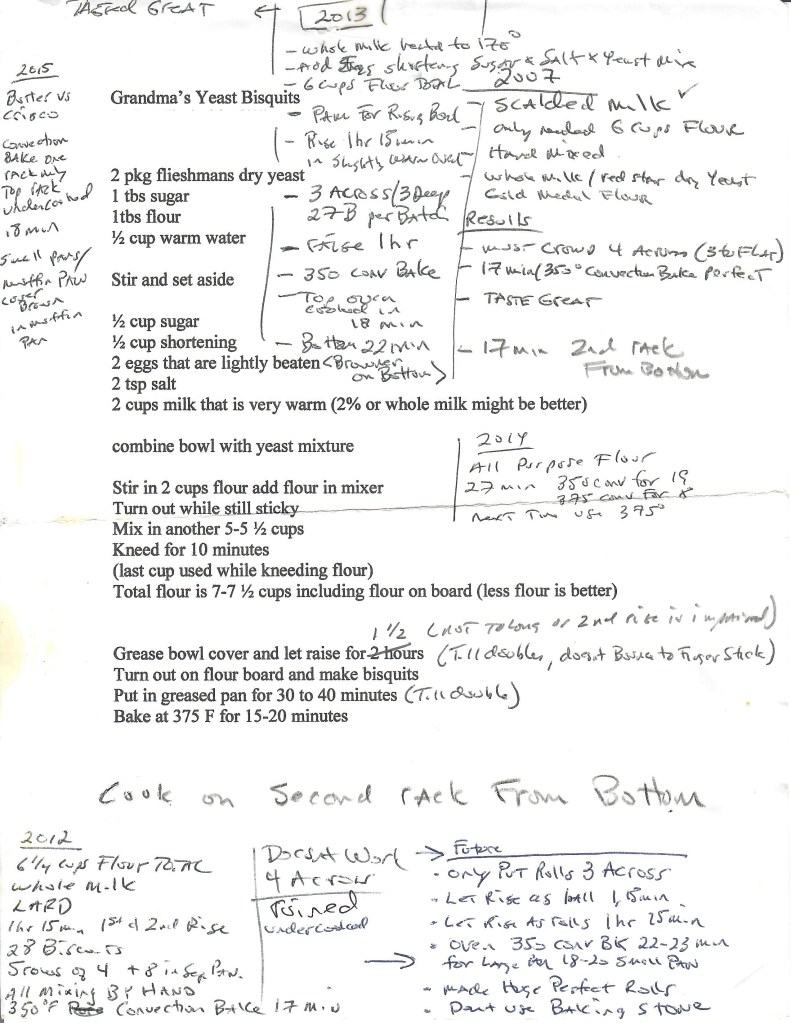 TASTED GREAT ← 2013
- whole milk heated to 170°
- Add Eggs shortening Sugar & Salt & Yeast Mix
- 6 cups Flour TOTAL
- PAM For Rising Bowl
- Rise 1hr 15min
in slightly warm oven
- 3 ACROSS/3 Deep
27 B per Batch
- RAISE 1hr
- 350 CONV BAKE
- Top oven
cooked in
18 min
- Bottom 22 min
<Browner
on Bottom>
2007
- SCALDED Milk ✓
only needed 6 cups FLOUR
Hand Mixed
- whole milk / red star dry Yeast
Gold Medal Flour
Results
- must CROWD 4 Across (3 to FLAT)
- 17 min/350° Convection Bake perfect
- TASTE Great
- 17 min 2nd rack
From Bottom
2015
Butter vs
Crisco
Convection
BAKE one
rack only
Top rack
undercooked
18 min
Small pans/
muffin PAN
Brown
in muffin
PAN
Grandma's Yeast Bisquits
2 pkg flieshmans dry yeast
1 tbs sugar
1tbs flour
½ cup warm water
Stir and set aside
½ cup sugar
½ cup shortening
2 eggs that are lightly beaten
2 tsp salt
2 cups milk that is very warm (2% or whole milk might be better)
combine bowl with yeast mixture
2014
All Purpose Flour
27 min 350 conv for 19
375 conv for 8
next Time use 375°
Stir in 2 cups flour add flour in mixer
Turn out while still sticky
Mix in another 5-5 ½ cups
Kneed for 10 minutes
(last cup used while kneeding flour)
Total flour is 7-7 ½ cups including flour on board (less flour is better)
1 1/2 (NOT TO LONG or 2nd rise is impaired)
Grease bowl cover and let raise for 2 hours (Till doubles, doesnt Bounce to Finger Stick)
Turn out on flour board and make bisquits
Put in greased pan for 30 to 40 minutes (Till double)
Bake at 375 F for 15-20 minutes
Cook on Second rack From Bottom
2012
6 1/4 cups Flour TOTAL
whole Milk
LARD
1hr 15min 1st & 2nd Rise
28 Biscuits
5 rows of 4 + 8 in Sep PAN.
All Mixing BY HAND
350°F Convection BAKE 17 min
Doesnt Work
4 Across
Ruined
undercooked
→ Future
• only PUT Rolls 3 Across
• Let Rise as ball 1, 15min.
• Let Rise As rolls 1hr 25min
• oven 350 conv BK 22-23 min
→ for Large PAN 18-20 Small PAN
• made Huge Perfect Rolls
• Dont use BAKING STONE